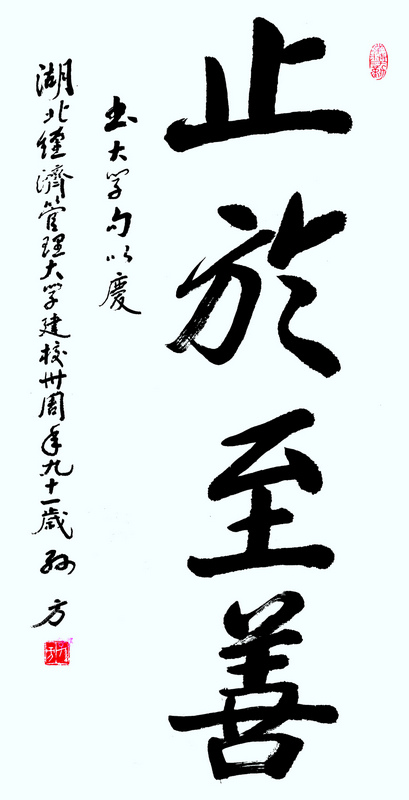 止於至善
书大学句以慶
湖北經濟管理大学建校卅周年九十一歲孙方